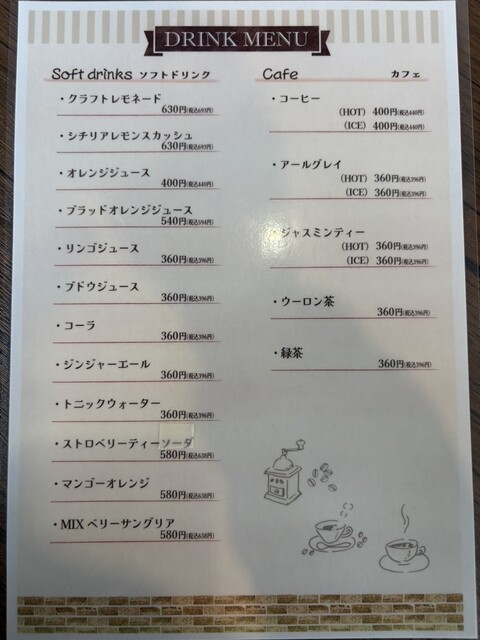 DRINK MENU
Soft drinks ソフトドリンク
・クラフトレモネード
630円(税込693円)
・シチリアレモンスカッシュ
630円(税込693円)
・オレンジジュース
400円(税込440円)
・ブラッドオレンジジュース
540円(税込594円)
・リンゴジュース
360円(税込396円)
・ブドウジュース
360円(税込396円)
・コーラ
360円(税込396円)
・ジンジャーエール
360円(税込396円)
・トニックウォーター
360円(税込396円)
・ストロベリーティーソーダ
580円(税込638円)
・マンゴーオレンジ
580円(税込638円)
・MIX ベリーサングリア
580円(税込638円)
Cafe カフェ
・コーヒー
(HOT) 400円(税込440円)
(ICE) 400円(税込440円)
・アールグレイ
(HOT) 360円(税込396円)
(ICE) 360円(税込396円)
・ジャスミンティー
(HOT) 360円(税込396円)
(ICE) 360円(税込396円)
・ウーロン茶
360円(税込396円)
・緑茶
360円(税込396円)